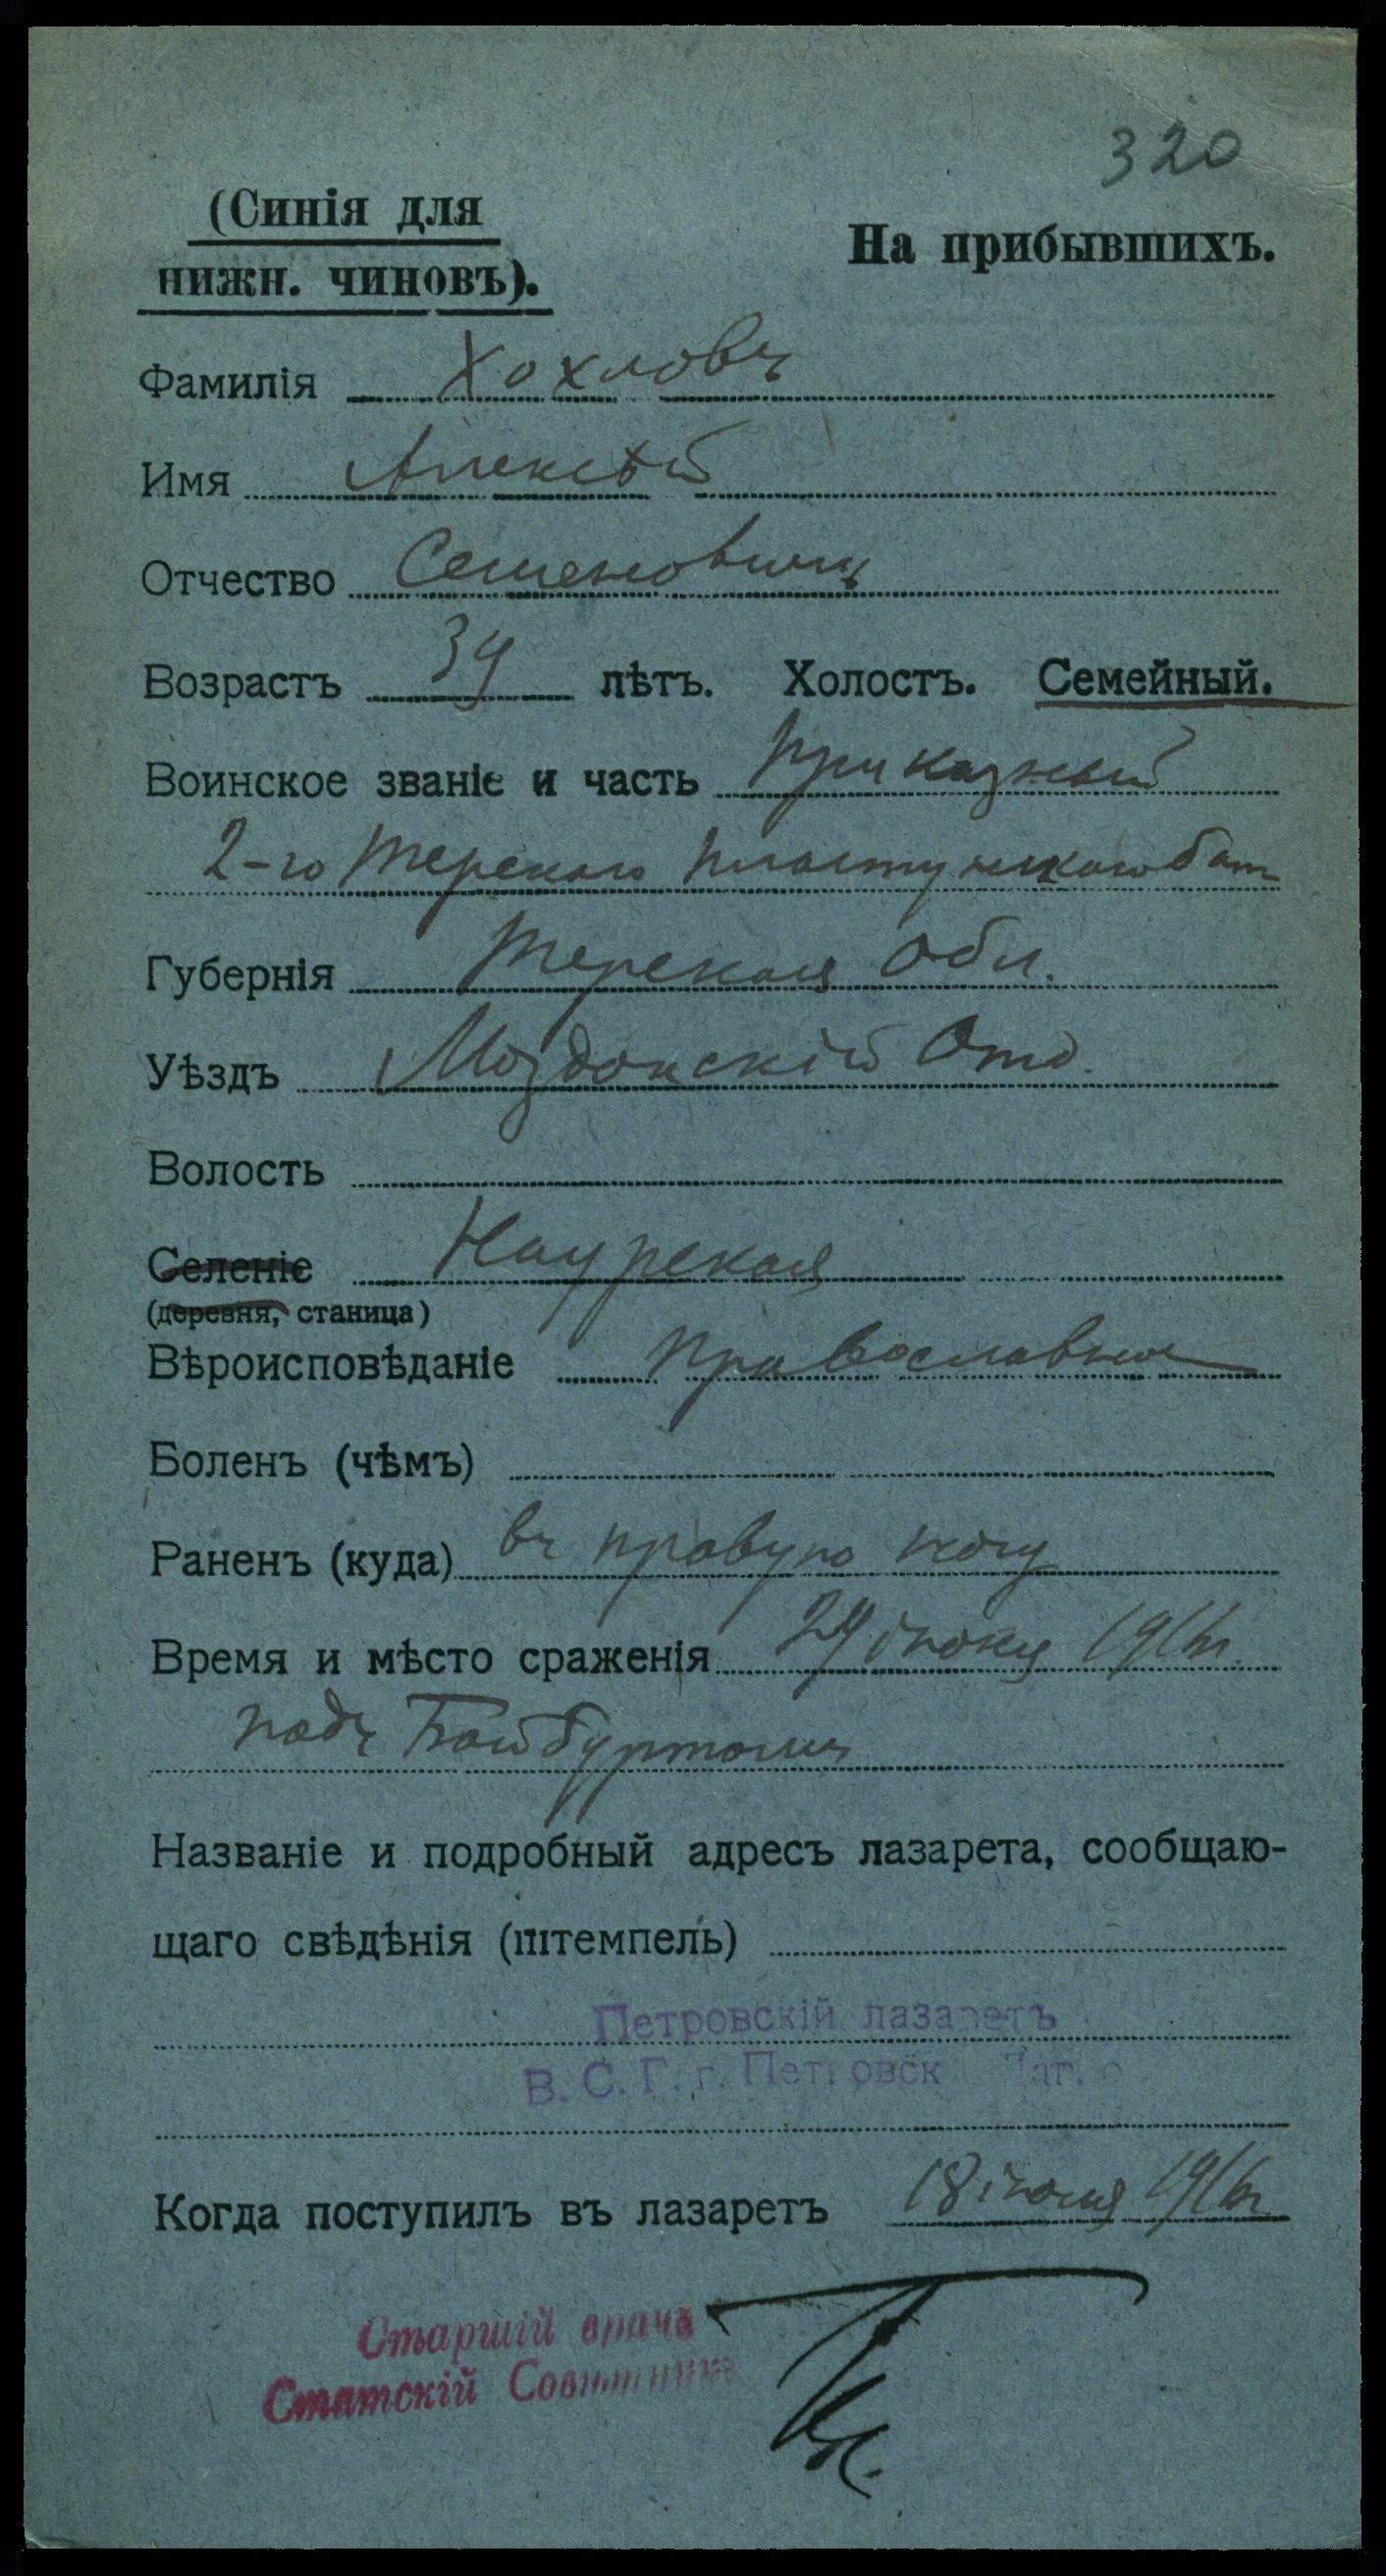 320
(Синія для
нижн. чиновъ).
На прибывшихъ.
Фамилія Хохловъ
Имя Алексѣй
Отчество Семеновичъ
Возрастъ 39 лѣтъ. Холостъ. Семейный.
Воинское званіе и часть приказный
2-го Терскаго пластунскаго бат
Губернія Терская обл.
Уѣздъ Моздокскій Отд.
Волость
Селеніе Наурская
(деревня, станица)
Вѣроисповѣданіе православн
Боленъ (чѣмъ)
Раненъ (куда) въ правую ногу
Время и мѣсто сраженія 29 1916г.
подъ Байбуртомъ
Названіе и подробный адресъ лазарета, сообщаю-
щаго свѣдѣнія (штемпель)
Петровскій лазаретъ
В. С. Г. г. Петровск
Когда поступилъ въ лазаретъ 18 1916г
Старшій врачъ
Статскій Совѣтникъ